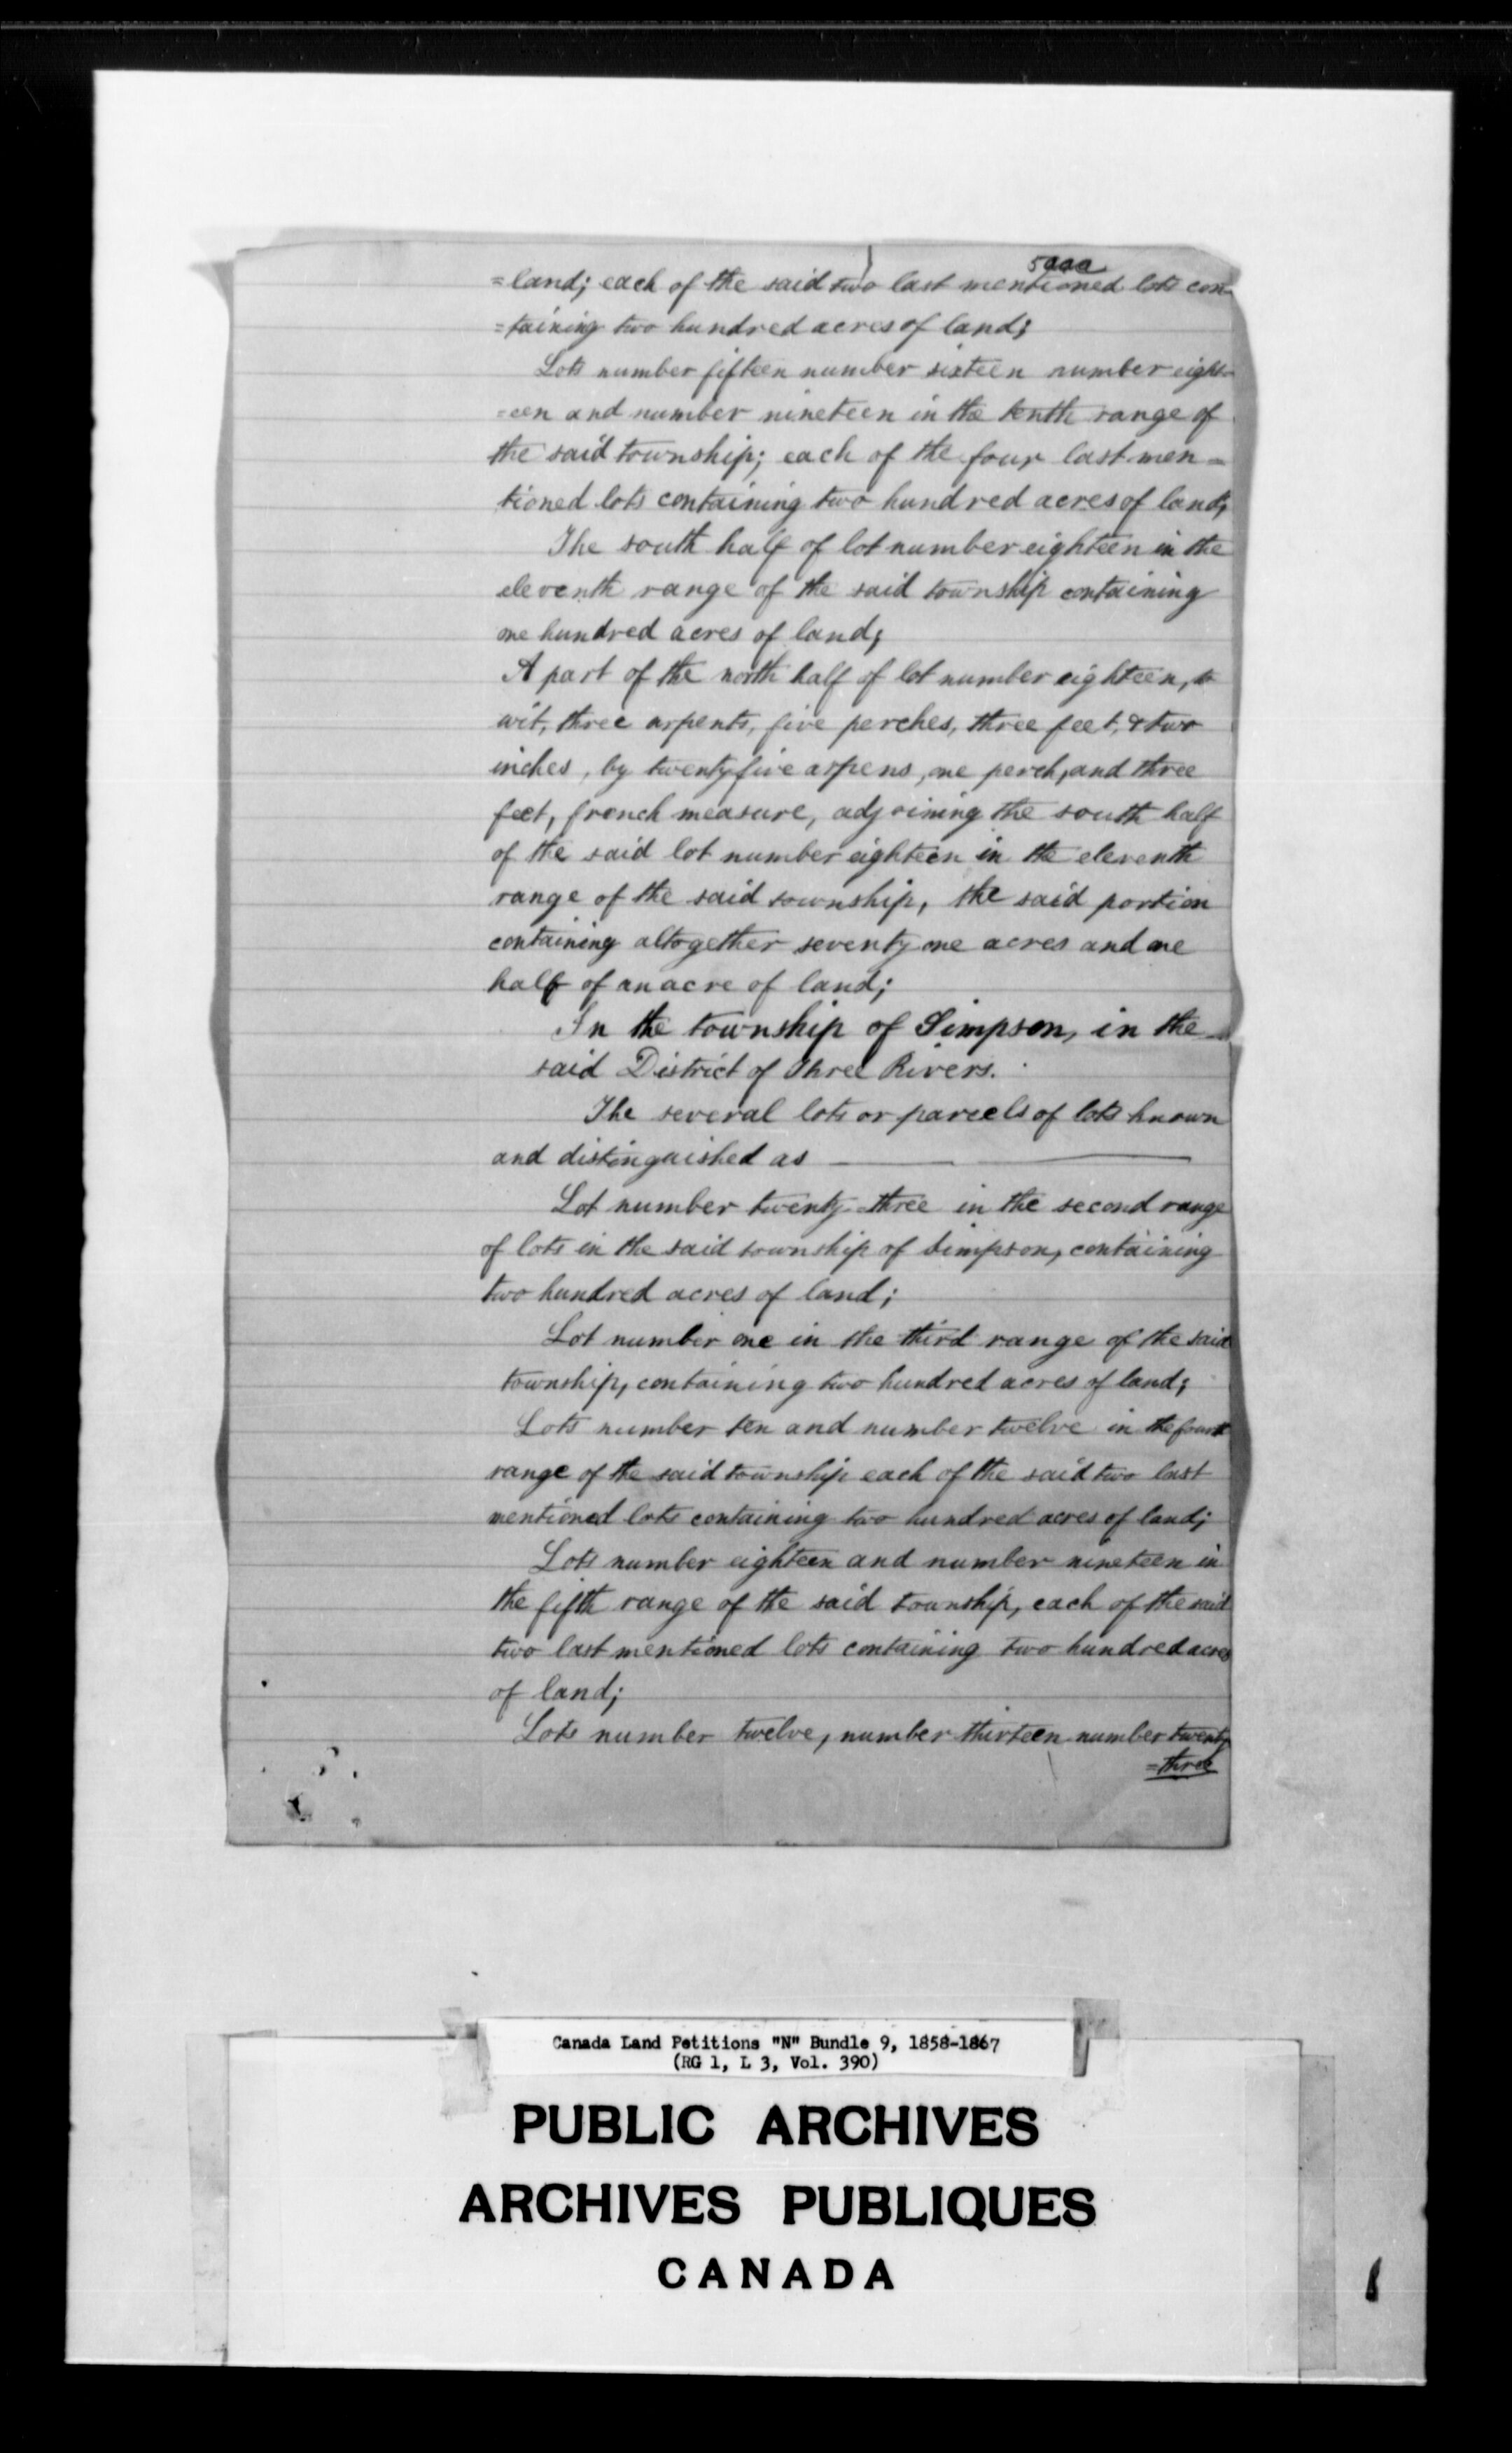 5aaa
=land; each of the said two last mentioned lots con-
=taining two hundred acres of land;
Lots number fifteen number sixteen number eight-
=een and number nineteen in the tenth range of
the said township; each of the four last men=
tioned lots containing two hundred acres of land;
The south half of lot number eighteen in the
eleventh range of the said township containing
one hundred acres of land;
A part of the north half of lot number eighteen, to
wit, three arpents, five perches, three feet, & two
inches, by twenty five arpens, one perch, and three
feet, french measure, adjoining the south half
of the said lot number eighteen in the eleventh
range of the said township, the said portion
containing altogether seventy one acres and one
half of an acre of land;
In the township of Simpson, in the
said District of Three Rivers.
The several lots or parcels of lots known
and distinguished as
Lot number twenty-three in the second range
of lots in the said township of Simpson, containing
two hundred acres of land;
Lot number one in the third range of the said
township, containing two hundred acres of land;
Lots number ten and number twelve in the fourth
range of the said township each of the said two last
mentioned lots containing two hundred acres of land;
Lots number eighteen and number nineteen in
the fifth range of the said township, each of the said
two last mentioned lots containing two hundred acres
of land;
Lots number twelve, number thirteen number twenty
=three
Canada Land Petitions "N" Bundle 9, 1858-1867
(RG 1, L 3, Vol. 390)
PUBLIC ARCHIVES
ARCHIVES PUBLIQUES
CANADA